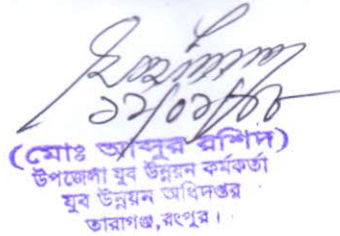 (মোঃ আব্দুর রশিদ)
উপজেলা যুব উন্নয়ন কর্মকর্তা
যুব উন্নয়ন অধিদপ্তর
তারাগঞ্জ,রংপুর।